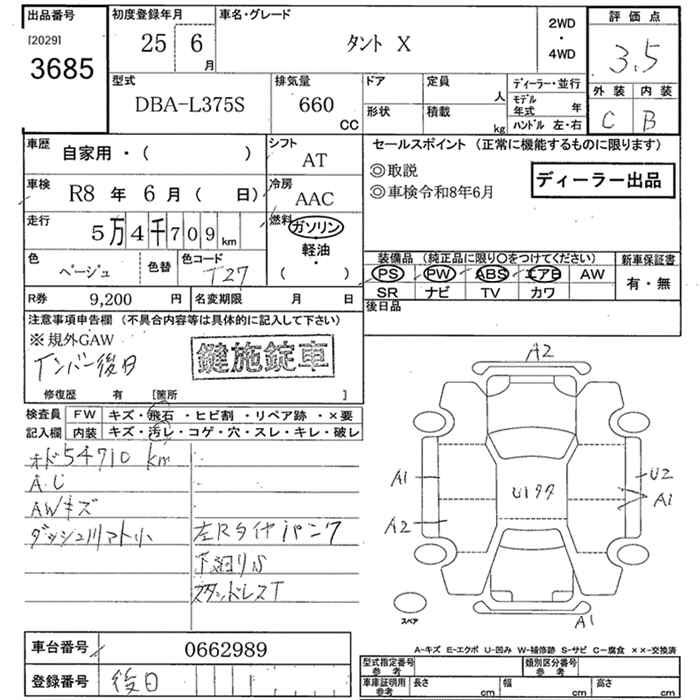 出品番号 初度登録年月 車名・グレード 2WD ・ 4WD 評価点
[2029] 3685 25 6月 タント X 3.5
外装 内装
C B
型式 排気量 ドア 定員 人 ディーラー・並行
DBA-L375S 660 CC 形状 積載 kg モデル年式 年
ハンドル 左・右
車歴 自家用・( ) シフト AT セールスポイント (正常に機能するものに限ります)
◎取説
◎車検令和8年6月
ディーラー出品
車検 R8 年 6 月 ( 日) 冷房 AAC
走行 5万4千709km 燃料 ガソリン 軽油 ・ ( )
色 ベージュ 色替 色コード T27
装備品 (純正品に限り○をつけてください) 新車保証書
PS PW ABS エアB AW 有・無
SR ナビ TV カワ
R券 9,200 円 名変期限 月 日 後日品
注意事項申告欄 (不具合内容等は具体的に記入して下さい)
※規外GAW
インバー後日
鍵施錠車
修復歴 有 [箇所 ]
検査員 FW キズ・飛石・ヒビ割・リペア跡・×要
記入欄 内装 キズ・汚レ・コゲ・穴・スレ・キレ・破レ
オド54710 km
A.C
AWキズ
左Rタイヤパンク
下回りS
スタッドレスT
A2
A1
A2
U2
A1
A1
スペア
車台番号 0662989
登録番号 後日
A-キズ E-エクボ U-凹み W-補修跡 S-サビ C-腐食 ××-交換済
型式指定番号 参考 類別区分番号 参考
車庫証明用 参考 長さ cm 幅 cm 高さ cm